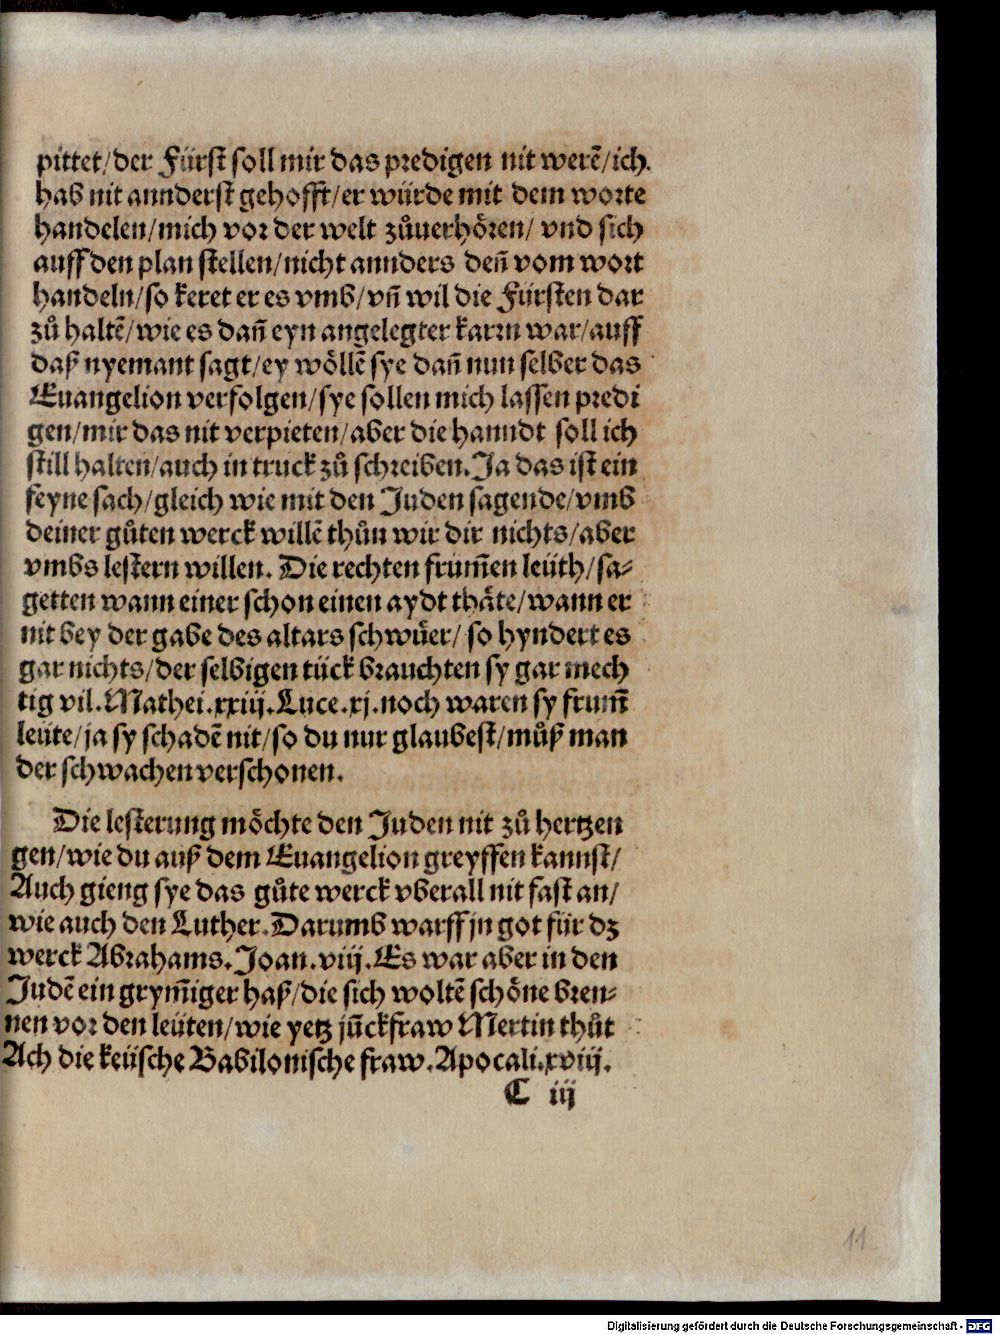 pittet/der Fürst soll mir das predigen nit werē/ich.
hab nit annderst gehofft/er würde mit dem worte
handelen/mich vor der welt zůuerhören/ vnd sich
auff den plan stellen/nicht annders deñ vom wort
handeln/so keret er es vmb/vñ wil die Fürsten dar
zů haltē/wie es dañ eyn angelegter karrn war/auff
daß nyemant sagt/ey wöllē sye dañ nun selber das
Euangelion verfolgen/sye sollen mich lassen predi
gen/mir das nit verpieten/aber die hanndt soll ich
still halten/auch in truck zů schreiben.Ja das ist ein
feyne sach/gleich wie mit den Juden sagende/vmb
deiner gůten werck willē thůn wir dir nichts/aber
vmbs lestern willen. Die rechten frum̄en leüth/sa⸗
getten wann einer schon einen aydt thäte/wann er
nit bey der gabe des altars schwůer/ so hyndert es
gar nichts/der selbigen tück brauchten sy gar mech
tig vil.Mathei.xxiij.Luce.xj.noch waren sy frum̄
leüte/ja sy schadē nit/so du nur glaubest/můß man
der schwachen verschonen.
Die lesterung möchte den Juden nit zů hertzen
gen/wie du auß dem Euangelion greyffen kannst/
Auch gieng sye das gůte werck vberall nit fast an/
wie auch den Luther.Darumb warff jn got für dz
werck Abrahams.Joan.viij.Es war aber in den
Judē ein grym̄iger haß/die sich woltē schöne bren⸗
nen vor den leüten/wie yetz jūckfraw Mertin thůt
Ach die keüsche Babilonische fraw.Apocali.xviij.
C iij
11
Digitalisierung gefördert durch die Deutsche Forschungsgemeinschaft - DFG